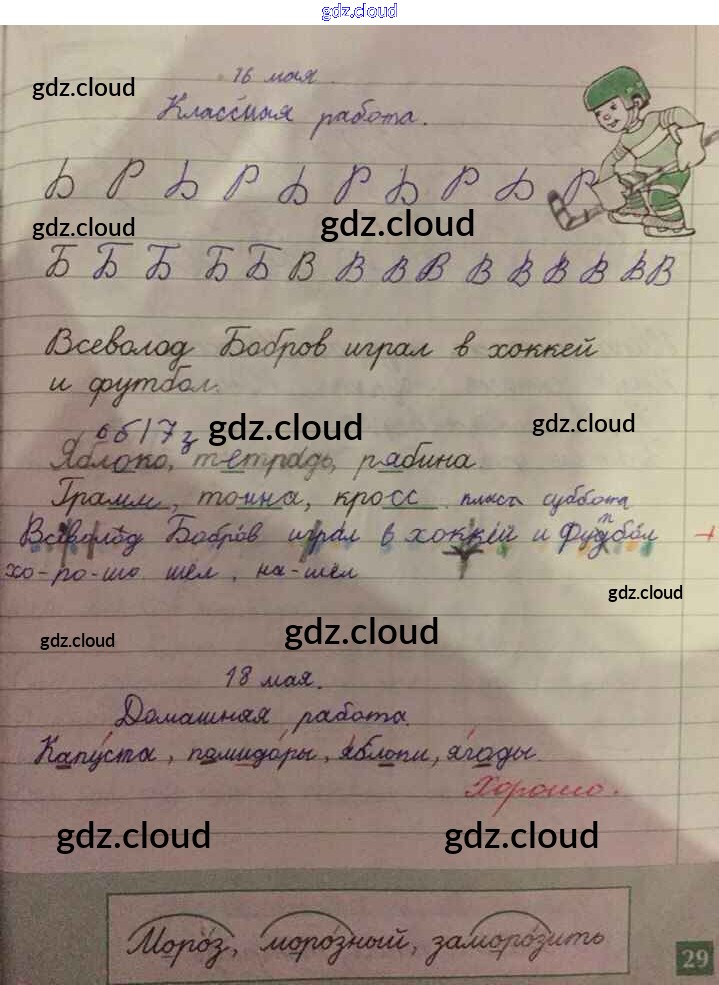 gdz.cloud
16 мая.
gdz.cloud
Классная работа.
Б Р Б Р Б Р Б Р Б Р
gdz.cloud gdz.cloud gdz.cloud
Б Б Б Б Б В В В В В В В В В В
Всеволод Бобров играл в хоккей
и футбол.
gdz.cloud gdz.cloud
Яблоко, тетрадь, рябина.
Грамм, тонна, кросс класс суббота
Всеволод Бобров играл в хоккей и Фудбол
т
хо-ро-шо шёл, на-шёл
gdz.cloud
gdz.cloud gdz.cloud
18 мая.
Домашняя работа.
Капуста, помидоры, яблоки, ягоды.
Хорошо.
gdz.cloud gdz.cloud
Мороз, морозный, заморозить
29